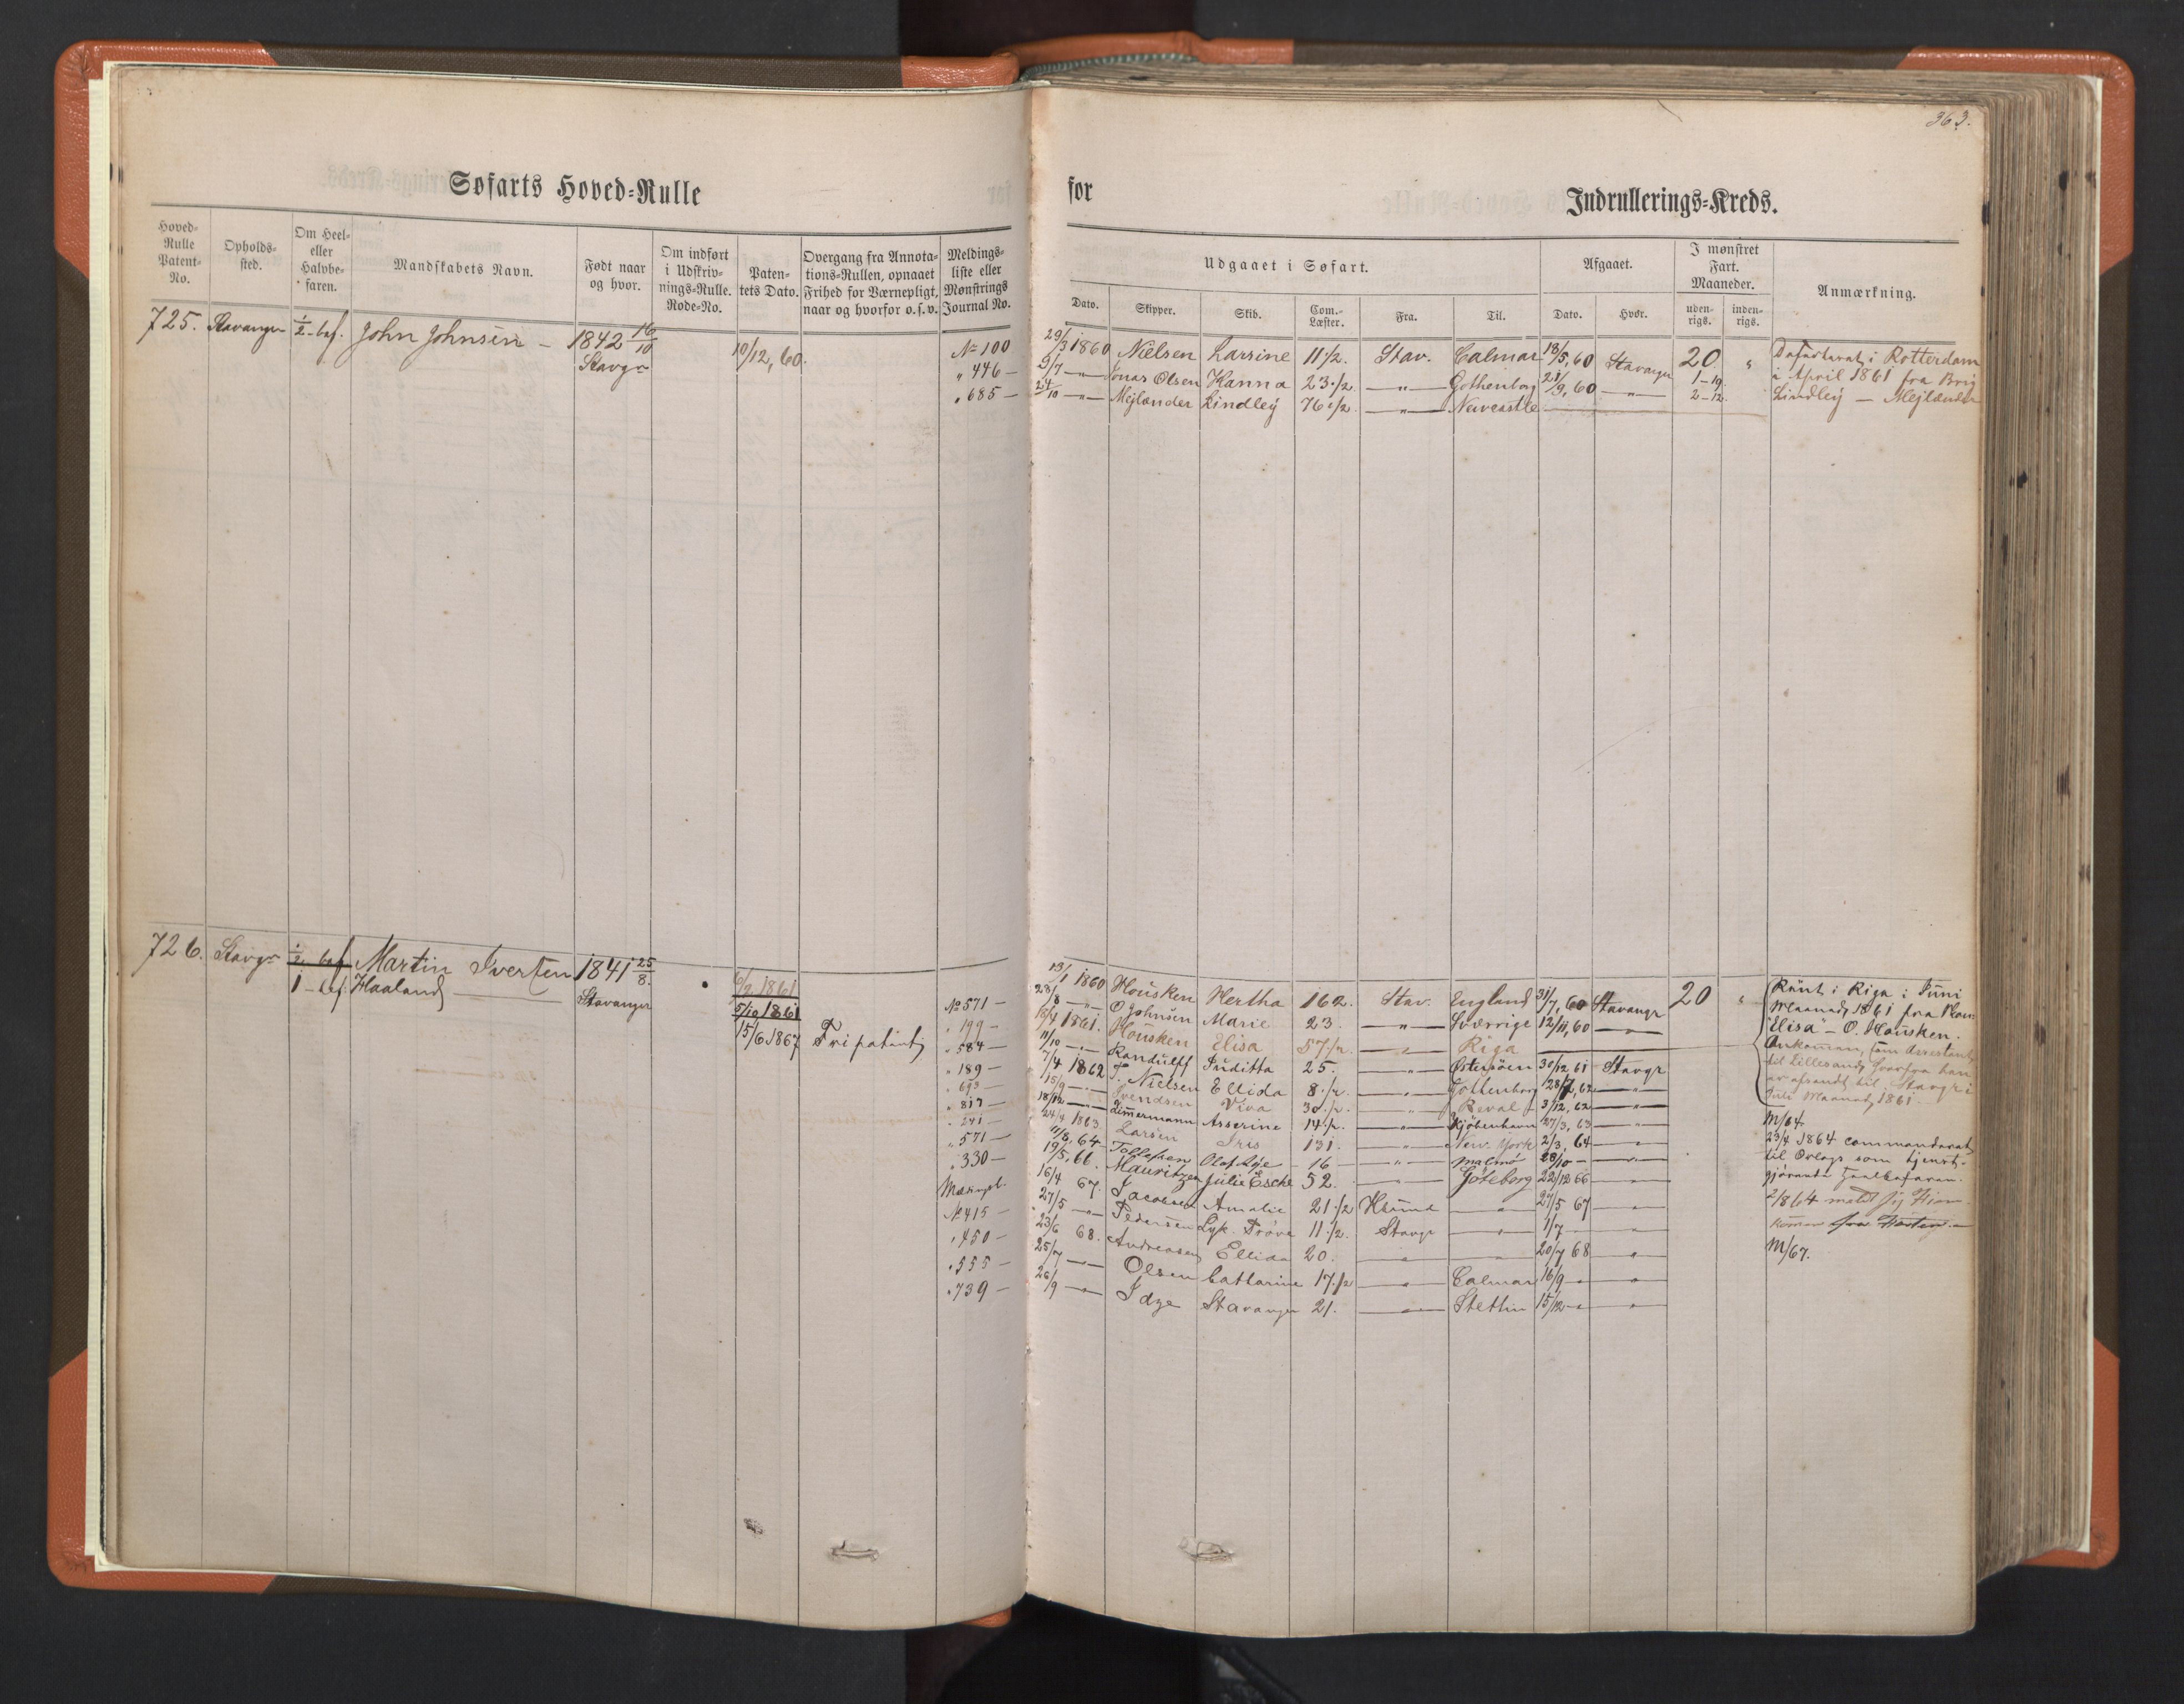 363.
Søfarts Hoved-Rulle
for
Indrullerings-Kreds.
Hoved-Rulle Patent-No.
Opholds-sted.
Om Heel- eller Halvbe-faren.
Mandskabets Navn.
Født naar og hvor.
Om indført i Udskriv-nings-Rulle. Rode-No.
Paten-tets Dato.
Overgang fra Annota-tions-Rullen, opnaaet Frihed for Værnepligt, naar og hvorfor o.s.v.
Meldings-liste eller Mønstrings Journal No.
Udgaaet i Søfart.
Dato.
Skipper.
Skib.
Com.-Læster.
Fra.
Til.
Afgaaet.
Dato.
Hvor.
I mønstret Fart. Maaneder.
uden-rigs.
inden-rigs.
Anmærkning.
725. Stavanger ½-bef. John Johnsen — 1842 16/10 10/12, 60.
Stavgr
No 100 29/3 1860 Nielsen Larsine 11½. Stav. Calmar 18/5, 60 Stavanger 20. "
" 446 — 5/7 —"— Jonas Olsen Hanna 23½. —"— Gothenborg 21/9, 60 —"— 1-19.
" 685 — 24/10 —"— Mejlænder Lindley 76½. —"— Newcastle 2-12.
Deserteret i Rotterdam
i April 1861 fra Brig
Lindley — Mejlænder
726. Stavgr ½ bef. Martin Iversen 1841 25/8.
1 - bef. Haaland — Stavanger
1861
5/10 1861
15/6 1867 Fripatent
13/1 1860 Housken Hertha 162. Stav. England 31/7, 60 Stavangr 20 "
No 571 — 28/8 —"— O Johnsen Marie 23. —"— Sverrige 12/11, 60 —"—
" 199 — 18/4 1861. Housken Elisa 57½. —"— Riga
" 584 — 11/10 —"— Randulff Juditta 25. —"— Østersøen 30/12, 61 Stavgr
" 189 — 7/4 1862 J. Nielsen Ellida 8½. —"— Gothenborg 28/7, 62 —"—
" 693 — 15/9 —"— Svendsen Viva 30½. —"— Reval 3/12, 62 —"—
" 817 — 18/12 —"— Zimmermann Asserine 14½. —"— Kjøbenhavn 27/3, 63 —"—
" 241 — 24/4 1863. Larsen Iris 131. —"— New York 2/3, 64 —"—
" 571 — 11/8, 64 Tollefsen Olaf 16 —"— Malmø 28/10 — —"—
" 330 — 19/5, 66. Mauritzen Julie Esche 52. —"— Göteborg 22/12 66 —"—
16/4 67. Jacobsen Amalie 21½ —"— 27/5 67 —"—
No 415 — 27/5 —"— Pedersen Lyk. Prøve 11½. Stavgr —"— 1/7 —"—
" 450 — 23/6 68. Andreasen Ellida 20. —"— —"— 20/7 68 —"—
" 555 — 25/7 —"— Olsen Cathrine 17½ —"— Calmar 16/9 —"— —"—
" 739 — 26/9 —"— Idze Stavanger 21. —"— Stettin 15/12 —"— —"—
Rømt i Riga i Juni
Maaned 1861 fra
"Elisa" — O. Housken.
Ankommen, som Arrestant
til Lillesand, hvorfra han
er afsendt til Stavgr i
Juli Maaned 1861.
M/64.
23/4 1864 commanderet
til Orlogs som tjenst-
gjørende Heelbefaren.
2/8 64 meldt sig Hjem
kommen fra Horten. —
M/67.